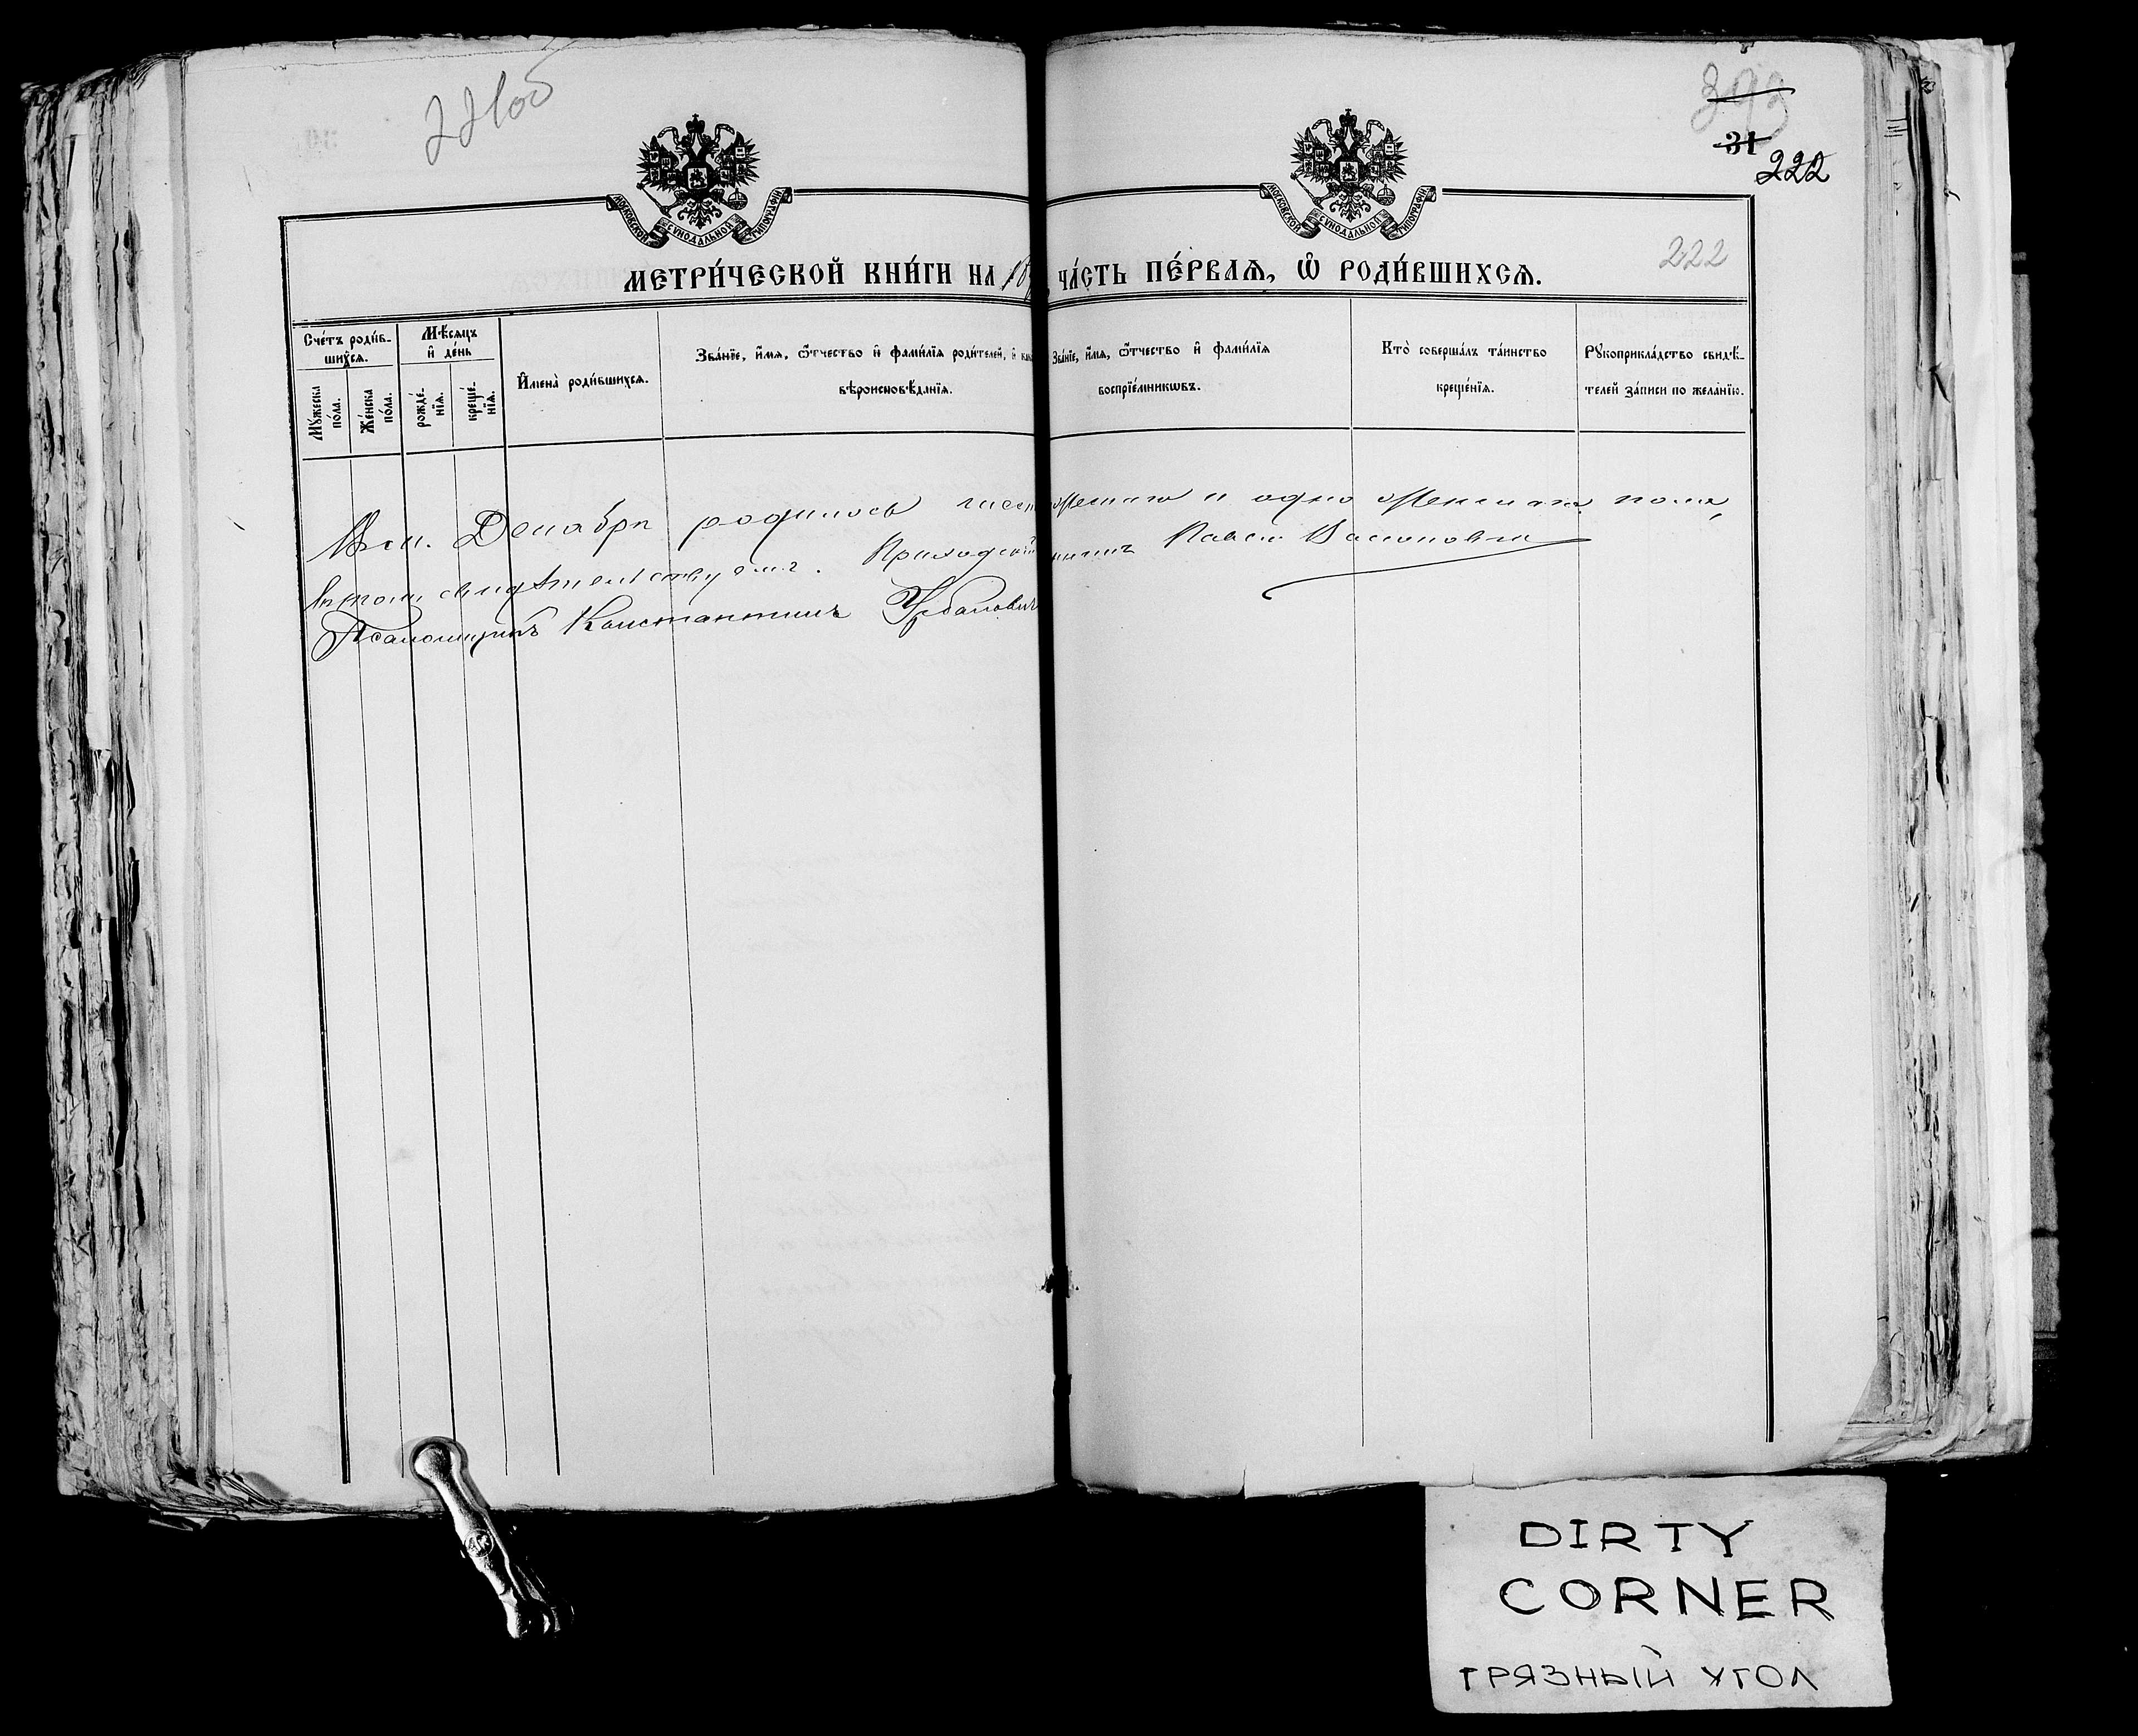 221об
393
31
222
МОСКОВСКОЙ СУНОДАЛЬНОЙ ТИПОГРАФІИ
МОСКОВСКОЙ СУНОДАЛЬНОЙ ТИПОГРАФІИ
222
МЕТРИ́ЧЕСКОЙ КНИ́ГИ НА 18
ЧА́СТЬ ПЕ́РВАѦ, Ѽ РОДИ́ВШИХСѦ.
Сче́тъ роди́в-
шихсѧ.
Мѣ́сѧцъ
и҆ де́нь
Мꙋжеска по́ла.
Же́нска по́ла.
рожде́-
нїѧ.
креще́-
нїѧ.
И҆мена̀ роди́вшихсѧ.
Зва́нїе, и҆́мѧ, ѻ҆́тчество и҆ фами́лїѧ роди́телей, и҆
вѣроисповѣ́данїѧ.
Зва́нїе, и҆́мѧ, ѻ҆́тчество и҆ фами́лїѧ
воспрїе́мникѡвъ.
Кто̀ соверша́лъ та́инство
креще́нїѧ.
Рꙋкоприкла́дство свидѣ́-
телей за́писи по жела́нїю.
Декабрѣ родилось и одно женскаго пола,
свидѣтельствуемъ. Приходскій
Псаломщикъ Константинъ Урбановичъ
DIRTY
CORNER
ГРЯЗНЫЙ УГОЛ